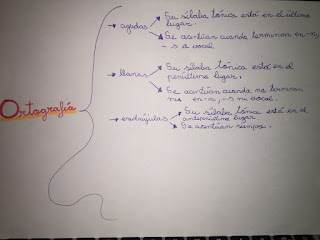 Ortografía
→ agudas
→ Su sílaba tónica está en el último
lugar.
→ Se acentúan cuando terminan en -n,
-s o vocal.
→ llanas
→ Su sílaba tónica está en el
penúltimo lugar.
→ Se acentúan cuando no terminan
en -n, -s ni vocal.
→ esdrújulas
→ Su sílaba tónica está en el
antepenúltimo lugar.
→ Se acentúan siempre.